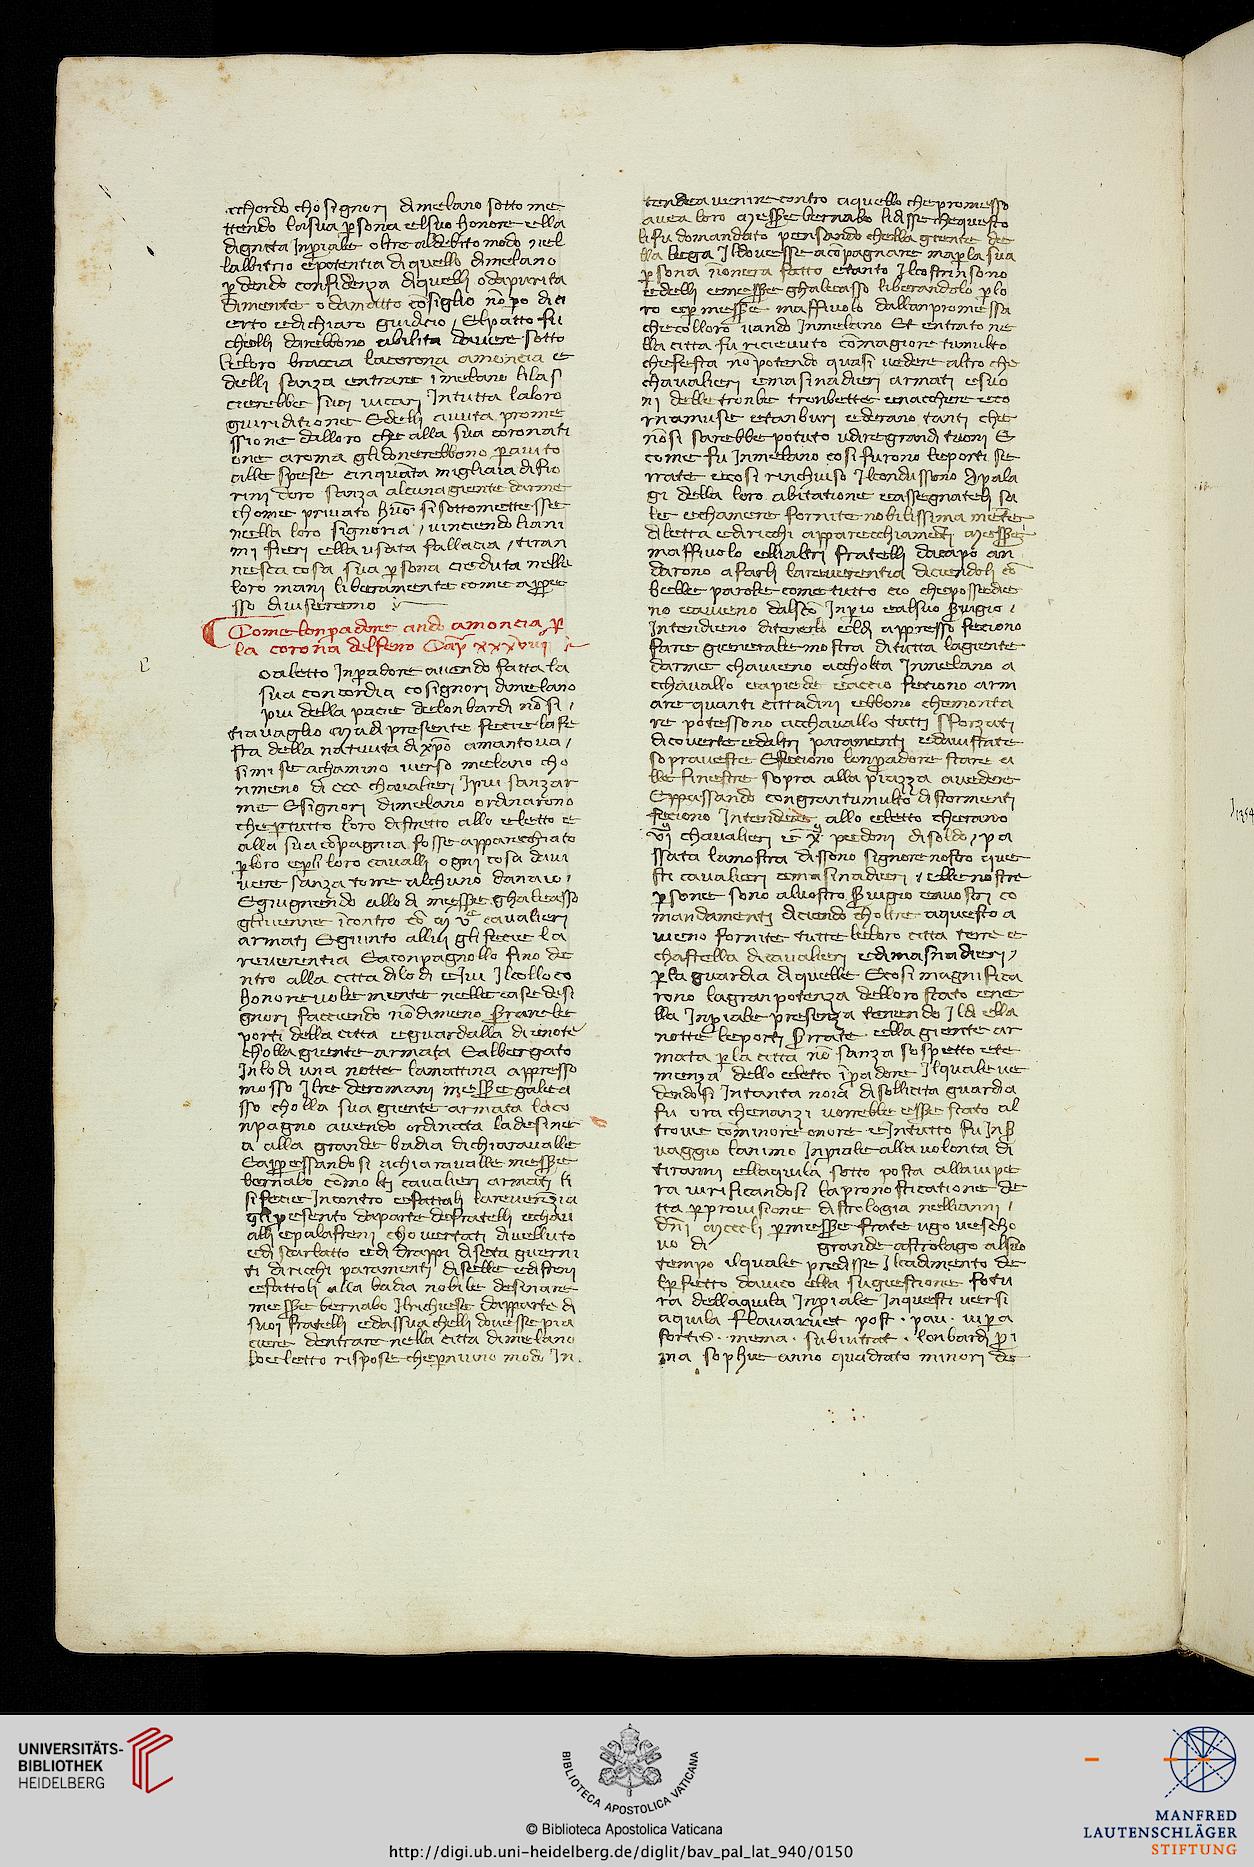 cchordo chosignori dimelano sotto me
ttendo lasua p̱sona elsuo honore ella
dignita Inp̱iale oltre aldebito modo nel
lalbitrio epotentia di quello dimelano
p̱dendo confidenza diquelli odapurita
dimente odamatto cōsiglio nō po dici
erto edichiaro guidicio / El patto fu
chelli darebbono abilita davere sotto
leloro braccia lacorona amoncia e
delli sanza entrare ī melano lilas
cierebbe suoi vicari Intutta laloro
guiriditione Edelli avuta prome
ssione dalloro che alla sua coronati
one aroma glidonerebbono p̱ aiuto
alle spese cinquāta migliaia difio
rini doro sanza alcuna giente darme
chome privato huō si sottomettesse
nella loro signoria / vinciendo liani
mi fieri ella usata fallacia / tiran
nesca cosa sua p̱sona creduta nelle
loro mani liberamente come apre
sso diviseremo
Come lonpadore ando amoncia p̱
la corona delferro Cap̱ xxxviij
oaletto Inp̱adore avendo fatta la
sua concordia cosignori dimelano
piu della pacie delonbardi nōsi /
travaglio Mada presente feciie lafe
sta della nativita di xp̄o amantova /
simise achamino verso melano cho
nmeno di ccc chavalieri Ipiu sanzar
me Esignori dimelano ordinarono
chep̱tutto loro distretto allo eletto e
alla sua cōpagnia fosse apparecchiato
p̱loro ep̱li loro cavalli ogni cosa davi
vere sanza torre alchuno danaio /
Egiugnendo allo di messer ghaleasso
glivenne īcontro cō cavalieri
armati Egiunto allui glifecie la
reverentia Eaconpagnollo fino de
ntro alla citta dilodi e Ivi Ilcolloco
honorevole mente nelle case desi
gnori facciendo nōdimeno s̱rare le
porti della citta eguardalla di enotte
cholla giente armata Ealbergato
Inlodi una notte lamattina appresso
mosso Ilre deromani messer galea
sso cholla sua giente armata laco
npagno avendo ordinata ladesine
a alla grande badia dichiaravalle
Eapp̱essandosi achiaravalle messer
bernabo cōmo cavalieri armati li
sifecie Incontro efattali lareverēzia
glip̱esento daparte defratelli echavi
alli epalafreni chovertati divelluto
edi scarlatto edi drappi diseta guerni
ti diricchi paramenti diselle edifreni
efattoli alla badia nobile desinare
messer bernabo Ilrichiese dapparte di
suoi fratelli edassua chelli dovesse pia
ciere dentrare nella citta dimelano
Loeletto rispose chep̱niuno modo In
tendea venire contro aquello chepromesso
avea loro Messer bernabo lidisse chequesto
lifu domandato pensando chella giente de
lla lega Ildovesse acōpagnare map̱la sua
p̱sona nonera fatto etanto Ilcostrinsono
edelli emesser ghaleasso liberandolo p̱lo
ro ep̱messer maffivolo dallanpromessa
checolloro vando Inmelano Et entrato ne
lla citta fu ricievuto cōmagiore tumulto
chefesta nō potendo quasi vedere altro che
chavalieri emasinadieri armati esuo
ni delletronbe tronbette enacchere eco
rnamuse etanburi ederano tanti che
nōsi sarebbe potuto udire grandi tuoni E
come fu Inmelano cosi furono leporti se
rrate ecosi rinchiuso Ilcondussono Apala
gi della loro abitatione eassegnateli sa
le echamere fornite nobilissima mēte
diletta edricchi apparecchiamēti Messer
maffivolo elli altri fratelli dacapo an
darono afarli lareverentia diciendoli cō
belle parole come tutto cio chepossedie
no eavieno dalsco Inp̱io ealsuo s̱vigio /
Intendieno ditenerlo eldi appresso feciono
fare gienerale mostra ditutta lagiente
darme chavieno accholta Inmelano a
cchavallo eapiede eaccio feciono arm
are quanti cittadini ebbono chemonta
re potessono acchavallo tutti sforzati
dicoverte edaltri paramenti edavistate
sopraveste Efeciono lonp̱adore stare a
lle finestre sopra alla piazza avedere
Eppassando congrantumulto distormenti
feciono Intendere allo eletto cherano
chavalieri pedoni disoldo / pa
ssata lamostra dissono signore nostro que
sti cavalieri emasinadieri / elle nostre
p̱sone sono alvostro s̱vigio eavostri co
mandamenti diciendo choltre aquesto a
vieno fornite tutte leloro citta terre e
chastella dicavalieri edimasnadieri /
p̱la guardia diquelle Ecosi magnifica
rono lagran potenza delloro stato ene
lla Inp̱iale presenza tenendo Ildi ella
notte leporti s̱rrate ella giente ar
mata p̱la citta nō sanza sospetto ete
menza dello eletto īp̱adore Ilquale ve
dendosi Intanta noia disollicita guardia
fu ora chenanzi vorrebbe esser stato al
trove cominore onore eIntutto fu Ins̱
vaggio lanimo Inp̱iale alla volonta di
tiranni ellaquila sotto posta allavipe
ra virificandosi lapronosticatione de
tta p̱provisione distrologia nellianni /
dn̄i Mcccli p̱messer frate ugo vescho
vo di grande astrolago alsuo
tempo ilquale predisse Ilcadimento de
lp̱fetto davico ella sugiestione fotu
ra dellaquila Inp̱iale Inquesti versi
aquila flavarvet post . pau . vip̱a
fortis . mema . subintrat . lonbardi p̱i
ma sophye anno quadrato minori de
1354
UNIVERSITÄTS-
BIBLIOTHEK
HEIDELBERG
BIBLIOTECA APOSTOLICA VATICANA
© Biblioteca Apostolica Vaticana
http://digi.ub.uni-heidelberg.de/diglit/bav_pal_lat_940/0150
MANFRED
LAUTENSCHLÄGER
STIFTUNG